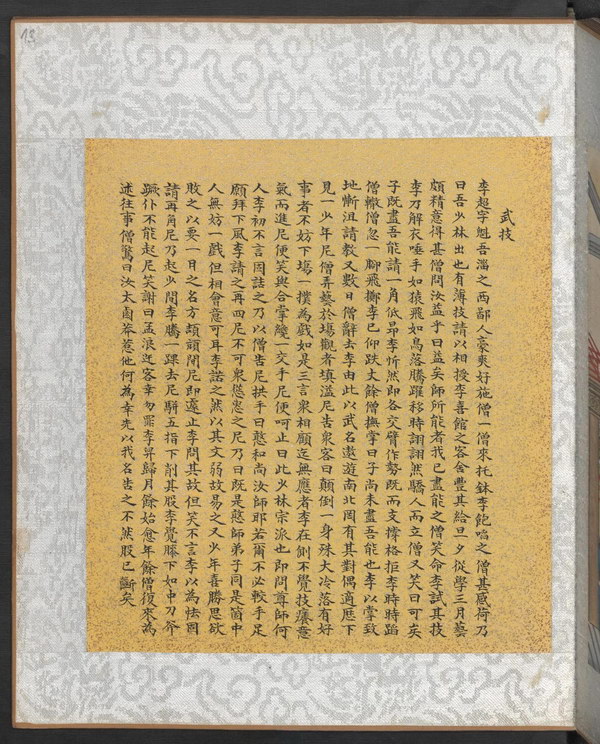 13
武技
李超字魁吾淄之西鄙人豪爽好施僧一僧來托鉢李飽啗之僧甚感荷乃
曰吾少林出也有薄技請以相授李喜館之客舍豐其給旦夕從學三月藝
頗精意得甚僧問汝益乎曰益矣師所能者我已盡能之僧笑命李試其技
李乃解衣唾手如猿飛如鳥落騰躍移時詡詡然驕人而立僧又笑曰可矣
子既盡吾能請一角低昂李忻然即各交臂作勢既而支撐格拒李時時蹈
僧轍僧忽一腳飛擲李已仰跌丈餘僧撫掌曰子尚未盡吾能也李以掌致
地慚沮請教又數日僧辭去李由此以武名遨遊南北罔有其對偶適歷下
見一少年尼僧弄藝於場觀者填溢尼告衆客曰顛倒一身殊大冷落有好
事者不妨下場一撲為戲如是三言衆相顧迄無應者李在側不覺技癢意
氣而進尼便笑與合掌纔一交手尼便呵止曰此少林宗派也即問尊師何
人李初不言因詰之乃以僧告尼拱手曰憨和尚汝師耶若爾不必較手足
願拜下風李請之再四尼不可衆慫恿之尼乃曰既是憨師弟子同是箇中
人無妨一戲但相會意可耳李諾之然以其文弱故易之又少年喜勝思欲
敗之以要一日之名方頡頏間尼即遽止李問其故但笑不言李以為怯固
請再角尼乃起少間李騰一踝去尼駢五指下削其股李覺膝下如中刀斧
蹶仆不能起尼笑謝曰孟浪迕客幸勿罪李舁歸月餘始愈年餘僧復來為
述往事僧驚曰汝太鹵莽惹他何為幸先以我名告之不然股已斷矣